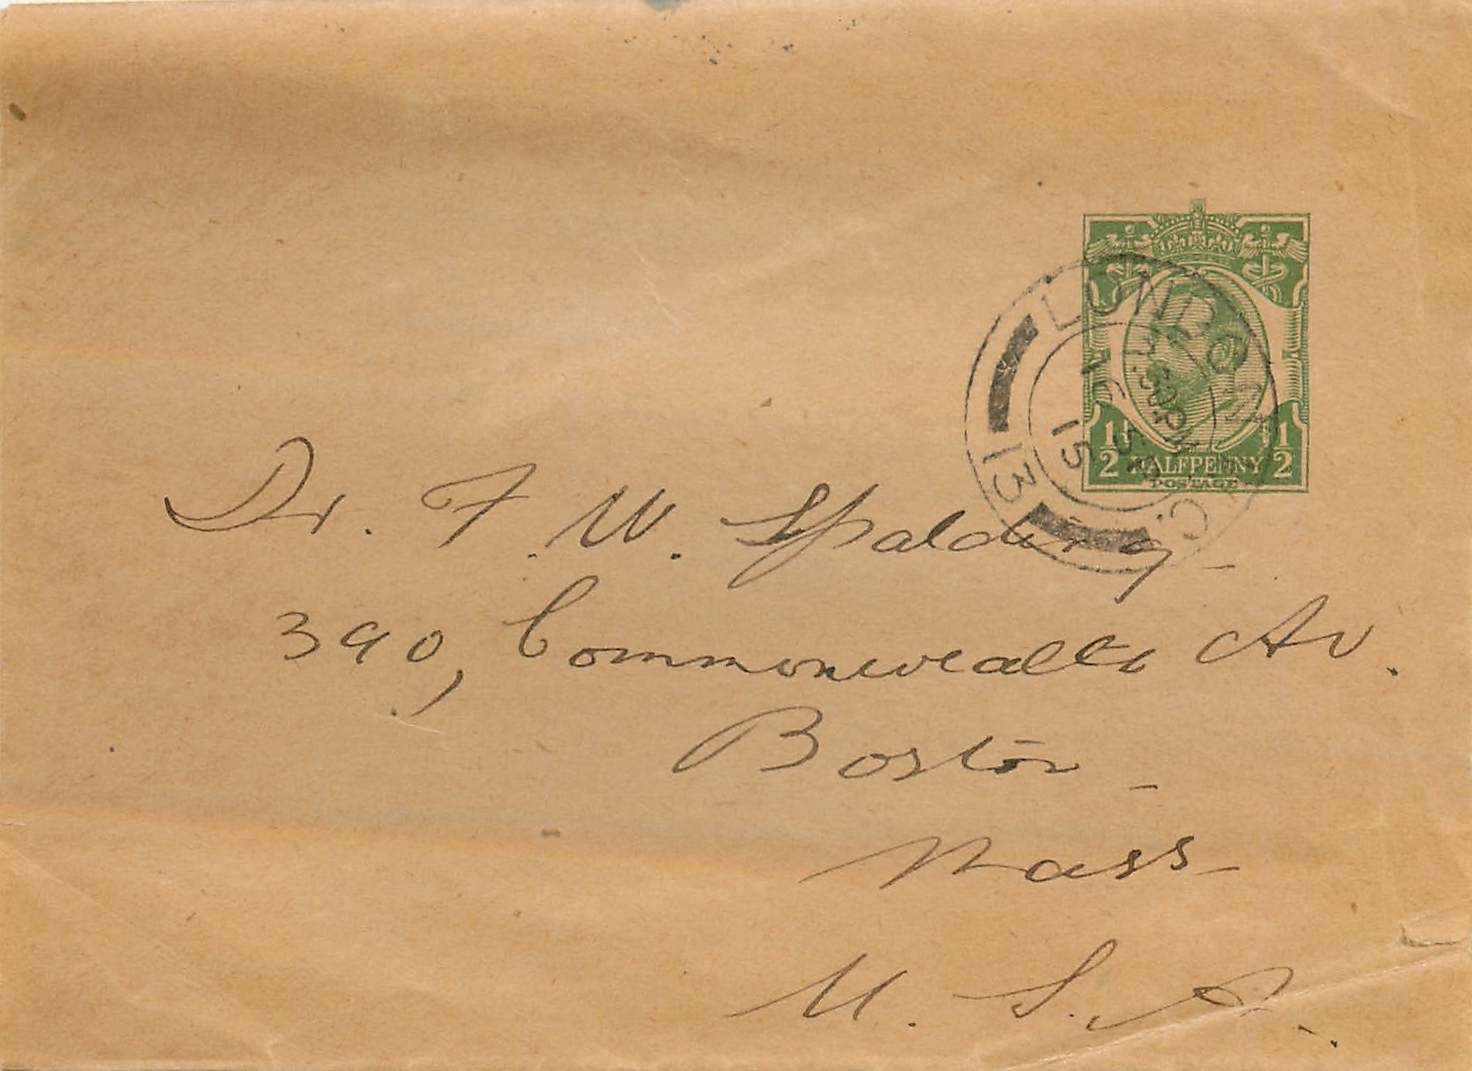 LONDON W.C.
13
.30PM
15
1/2 1/2
HALFPENNY
POSTAGE
Dr. F. W. Spalding
390, Commonwealth Av.
Boston
Mass
U. S. A.